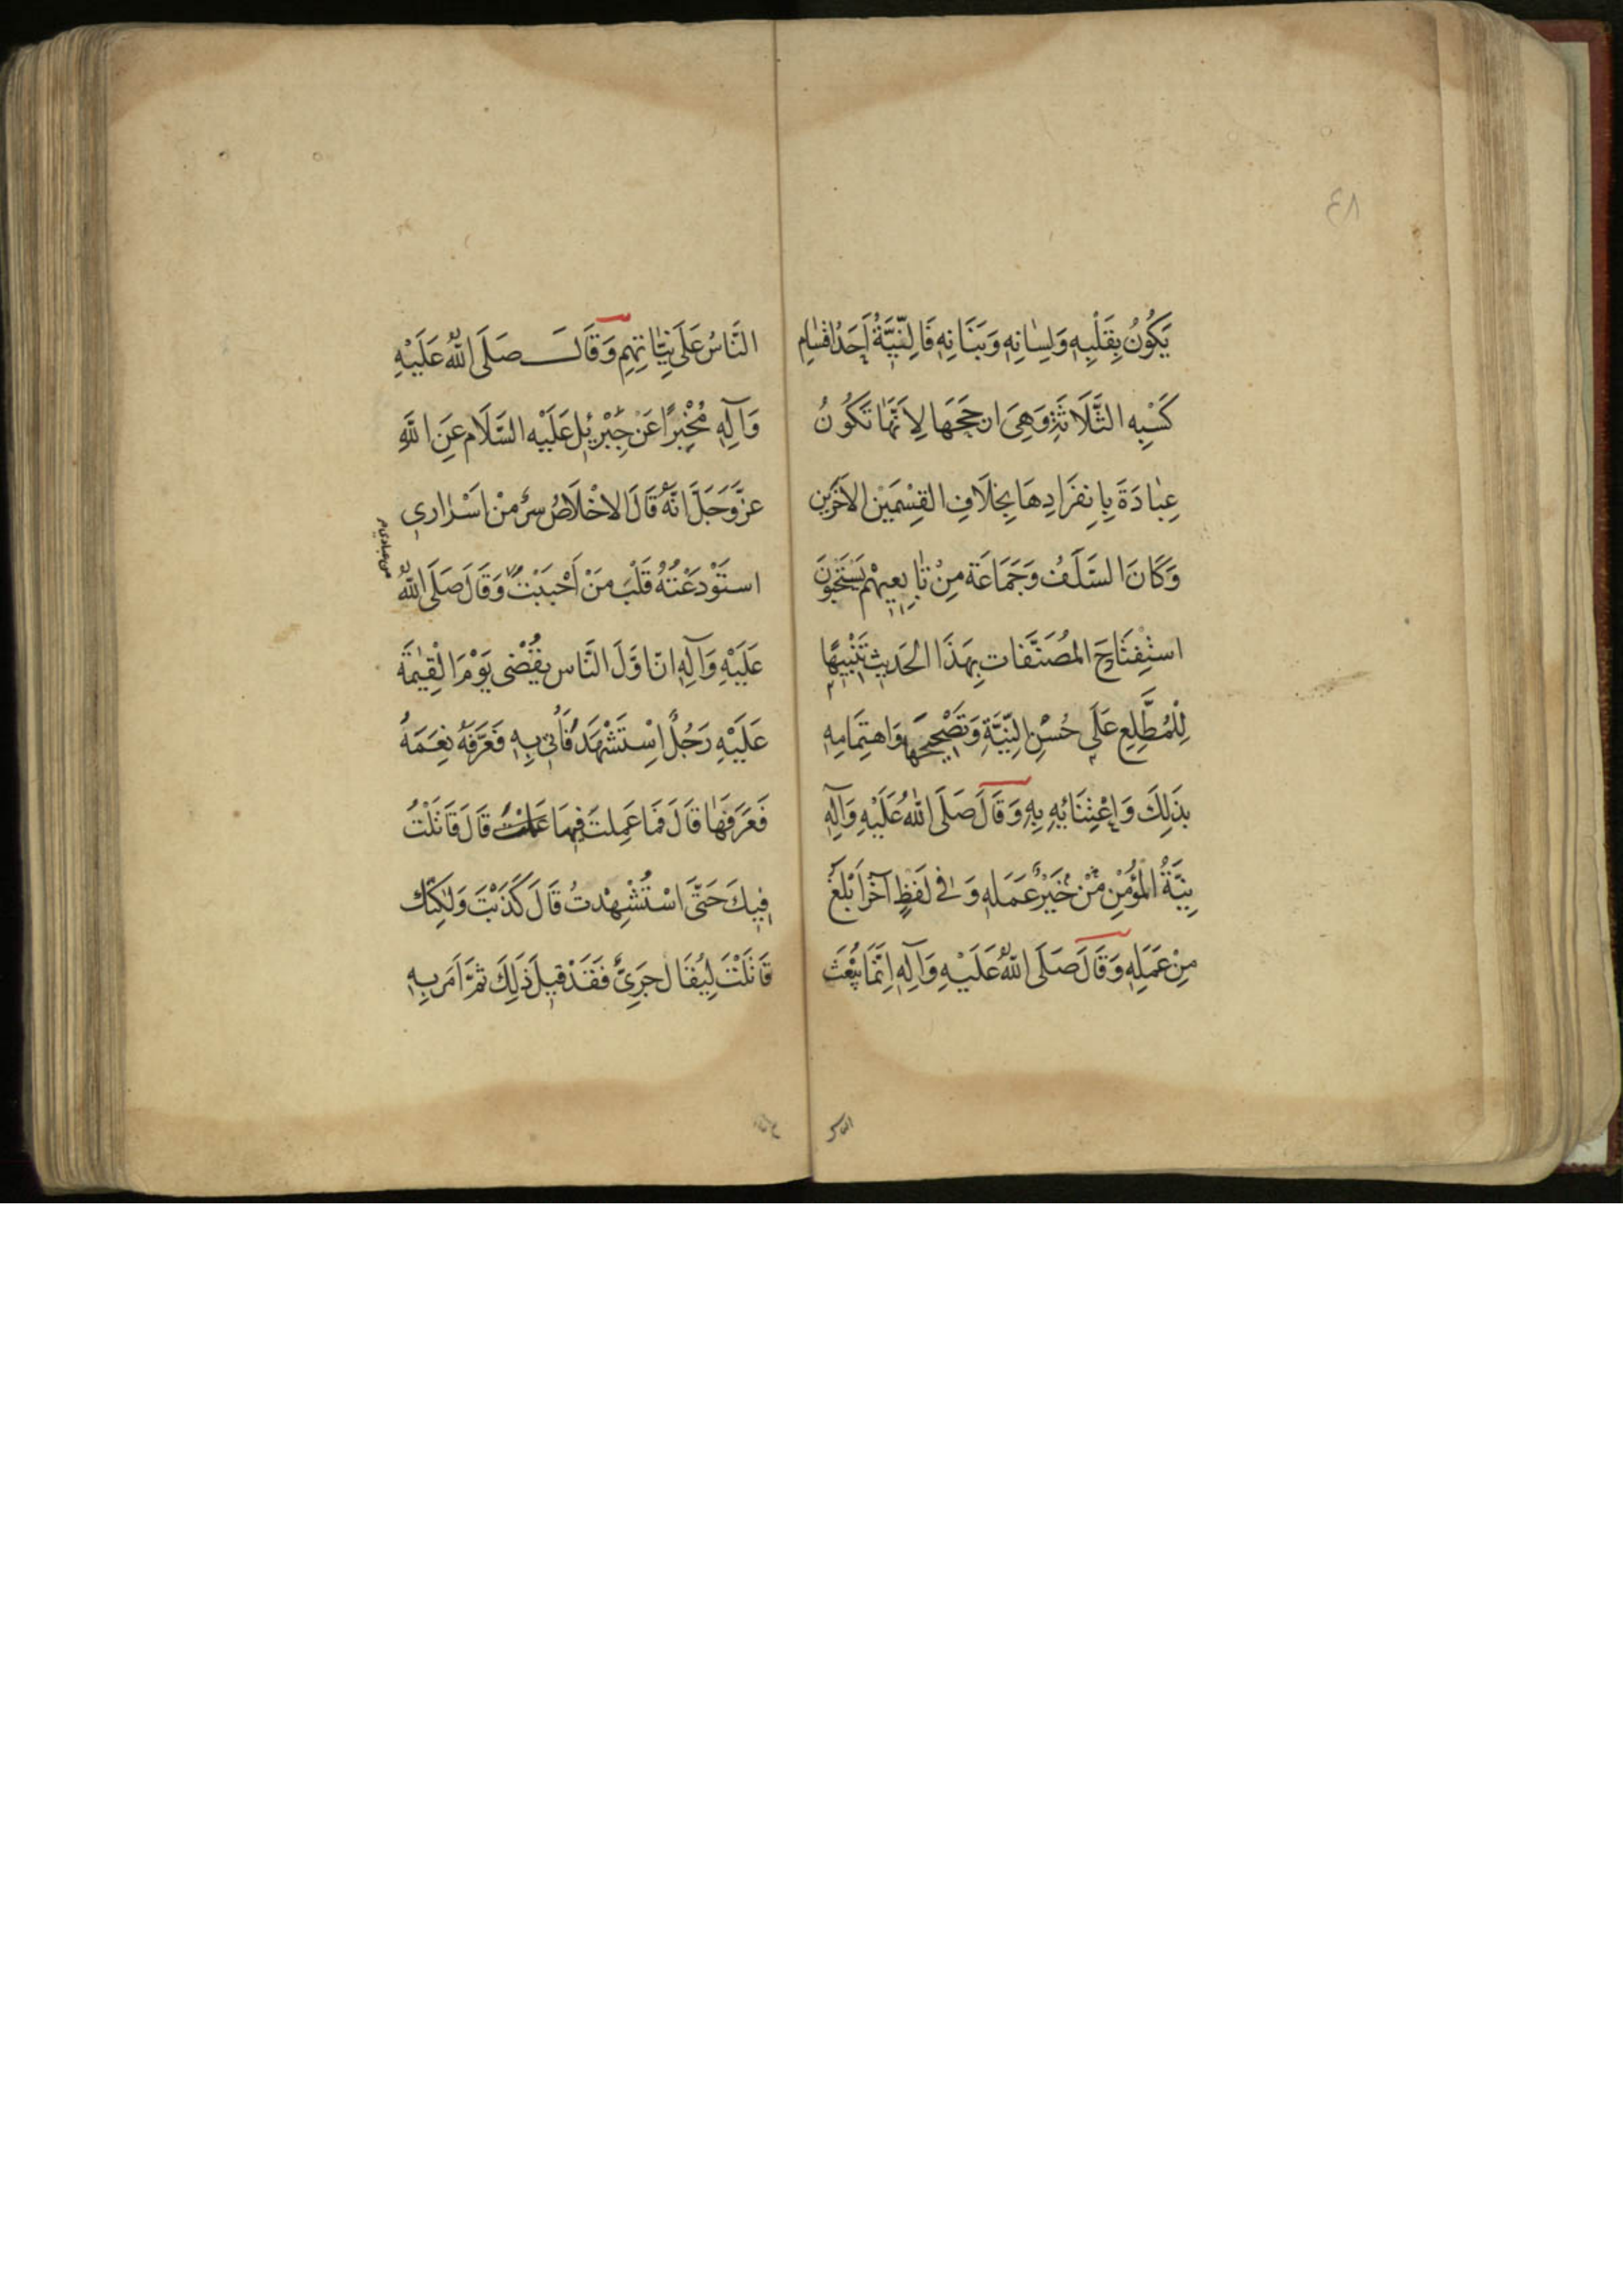 ٤٨
يَكُونُ بِقَلْبِهِ وَلِسَانِهِ وَبَنَانِهِ فَالنِّيَّةُ أَحَدُ اقْسَامِ
كَسْبِهِ الثَّلَاثَةِ وَهِيَ ارجَحَهَا لِاَنَّهَا تَكُونُ
عِبَادَةَ بِانفِرَادِهَا بِخِلَافِ القِسْمَيْنِ الآخَرَين
وَكَانَ السَّلَفُ وَجَمَاعَة مِنْ تَابِعِيهِمْ يَسْتَحِبُّونَ
استِفْتَاحَ المُصَنَّفَات بِهَذَا الحَدِيثِ تَنْبِيهًا
لِلْمُطَّلِعِ عَلَى حُسْنِ النِّيَّةِ وَتَصْحِيحِهَا وَاهتِمَامِهِ
بِذَلِكَ وَاِعْتِنَائِهِ بِهِ وَقَالَ صَلَّى اللهُ عَلَيْهِ وَآلِهِ
نِيَّةُ الْمُؤْمِنِ مِنْ خَيْرٌ عَمَلِهِ وَفِي لَفظٍ آخَرَ اَبْلَغُ
مِنْ عَمَلِهِ وَقَالَ صَلَّى اللهُ عَلَيْهِ وَآلِهِ اِنَّمَا يُبْعَثُ
النَّاسُ عَلَى نِيَّاتِهِمِ وَقَالَ صَلَّى اللهُ عَلَيْهِ
وَآلِهِ مُخْبِرًا عَنْ جِبْرِيل عَلَيْهِ السَّلَام عَنِ اللهِ
عزَّ وَجَلَّ انَّهُ قَالَ الاخْلَاصُ سِرٌّ مِنْ اَسْرَارِي
استَوْدَعْتُهُ قَلْبَ مَنْ اَحْبَبْتُ وَقَالَ صَلَّى اللهُ
من عبادي
عَلَيْهِ وَآلِهِ انّ اوَّلَ النَّاس يُقْضى يَوْمَ الْقِيٰمَةِ
عَلَيْهِ رَجُلٌ اِسْتَشْهَدَ فَاُتِيَ بِهِ فَعَرَّفَهُ نِعَمَهُ
فَعَرَفَهَا قَالَ فَمَا عَمِلتَ فِيهَا قَالَ قَاتَلْتُ
فِيكَ حَتَّى اسْتُشْهِدْتُ قَالَ كَذَبْتَ وَلٰكِنَّكَ
قَاتَلْتَ لِيُقَالَ جَرِيٌّ فَقَدْ قِيلَ ذَلِكَ ثُمَّ اَمَرَ بِهِ